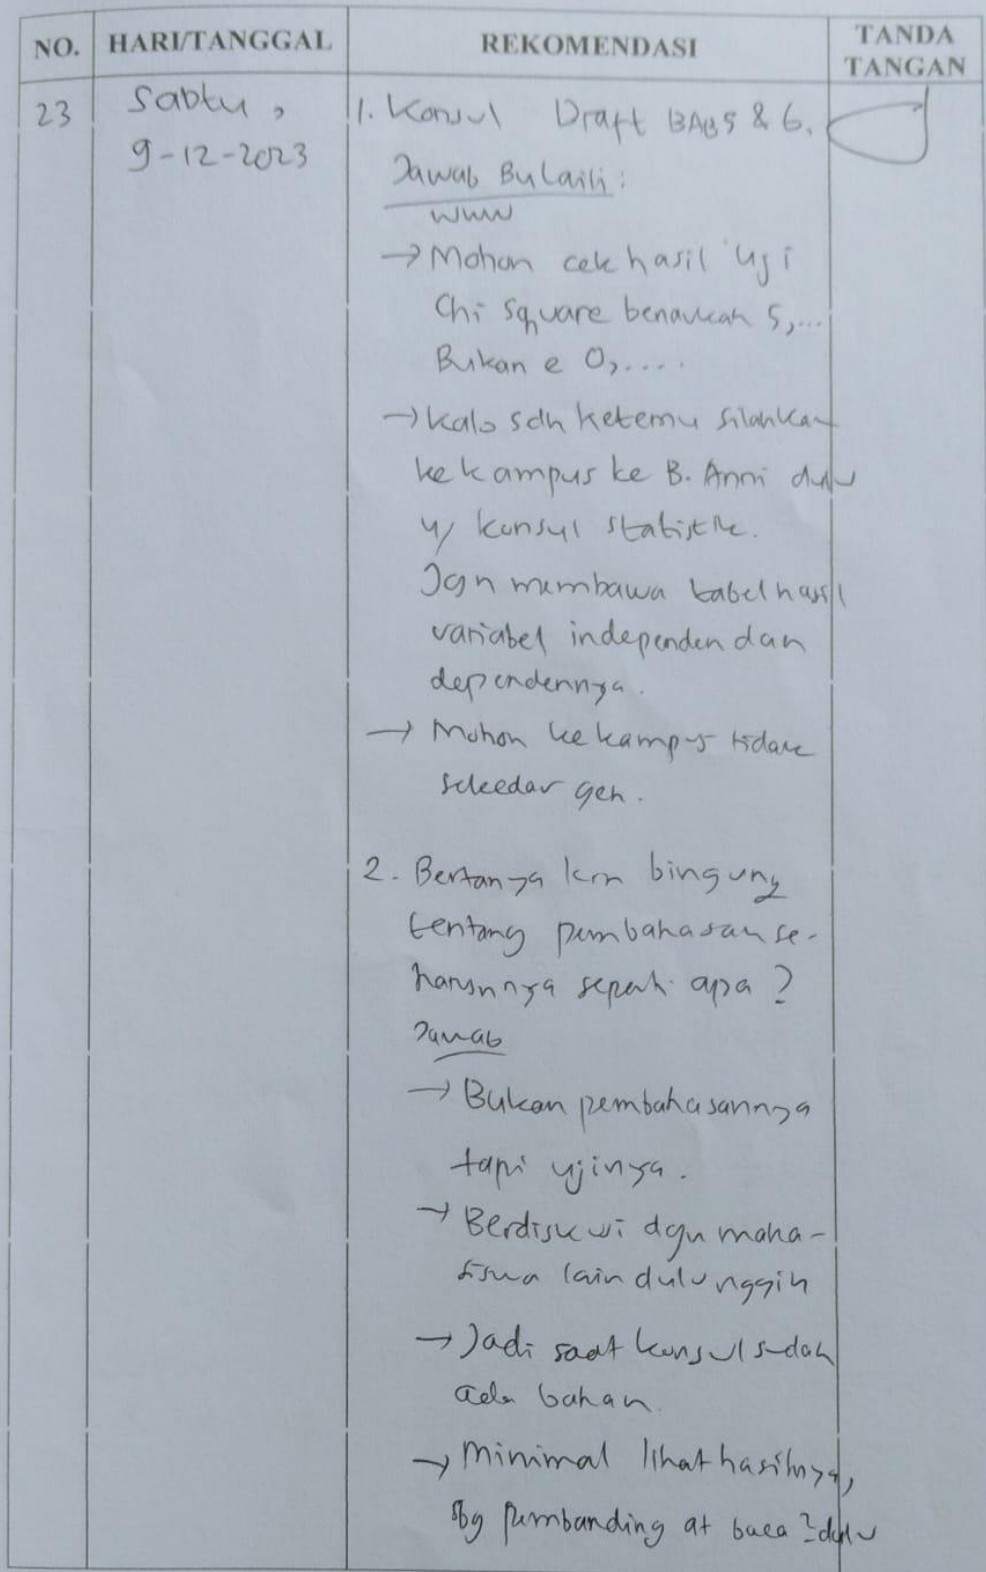 NO. HARI/TANGGAL REKOMENDASI TANDA TANGAN
23 Sabtu, 1. Konsul Draft BAB 5 & 6.
9-12-2023
Jawab Bu Laili:
www
→ Mohon cek hasil uji
Chi square benarkah 5,...
Bukan e 0,....
→ Kalo sdh ketemu silahkan
ke kampus ke B. Anni dulu
u/ konsul statistik.
Dgn membawa tabel hasil
variabel independen dan
dependennya.
→ Mohon ke kampus tidak
sekedar geh.
2. Bertanya krn bingung
tentang pembahasan se-
harusnnya seperti apa?
Jawab
→ Bukan pembahasannya
tapi ujinya.
→ Berdiskusi dgn maha-
siswa lain dulu nggih
→ Jadi saat konsul sudah
ada bahan.
→ Minimal lihat hasilnya,
sbg pembanding at baca 2 dulu